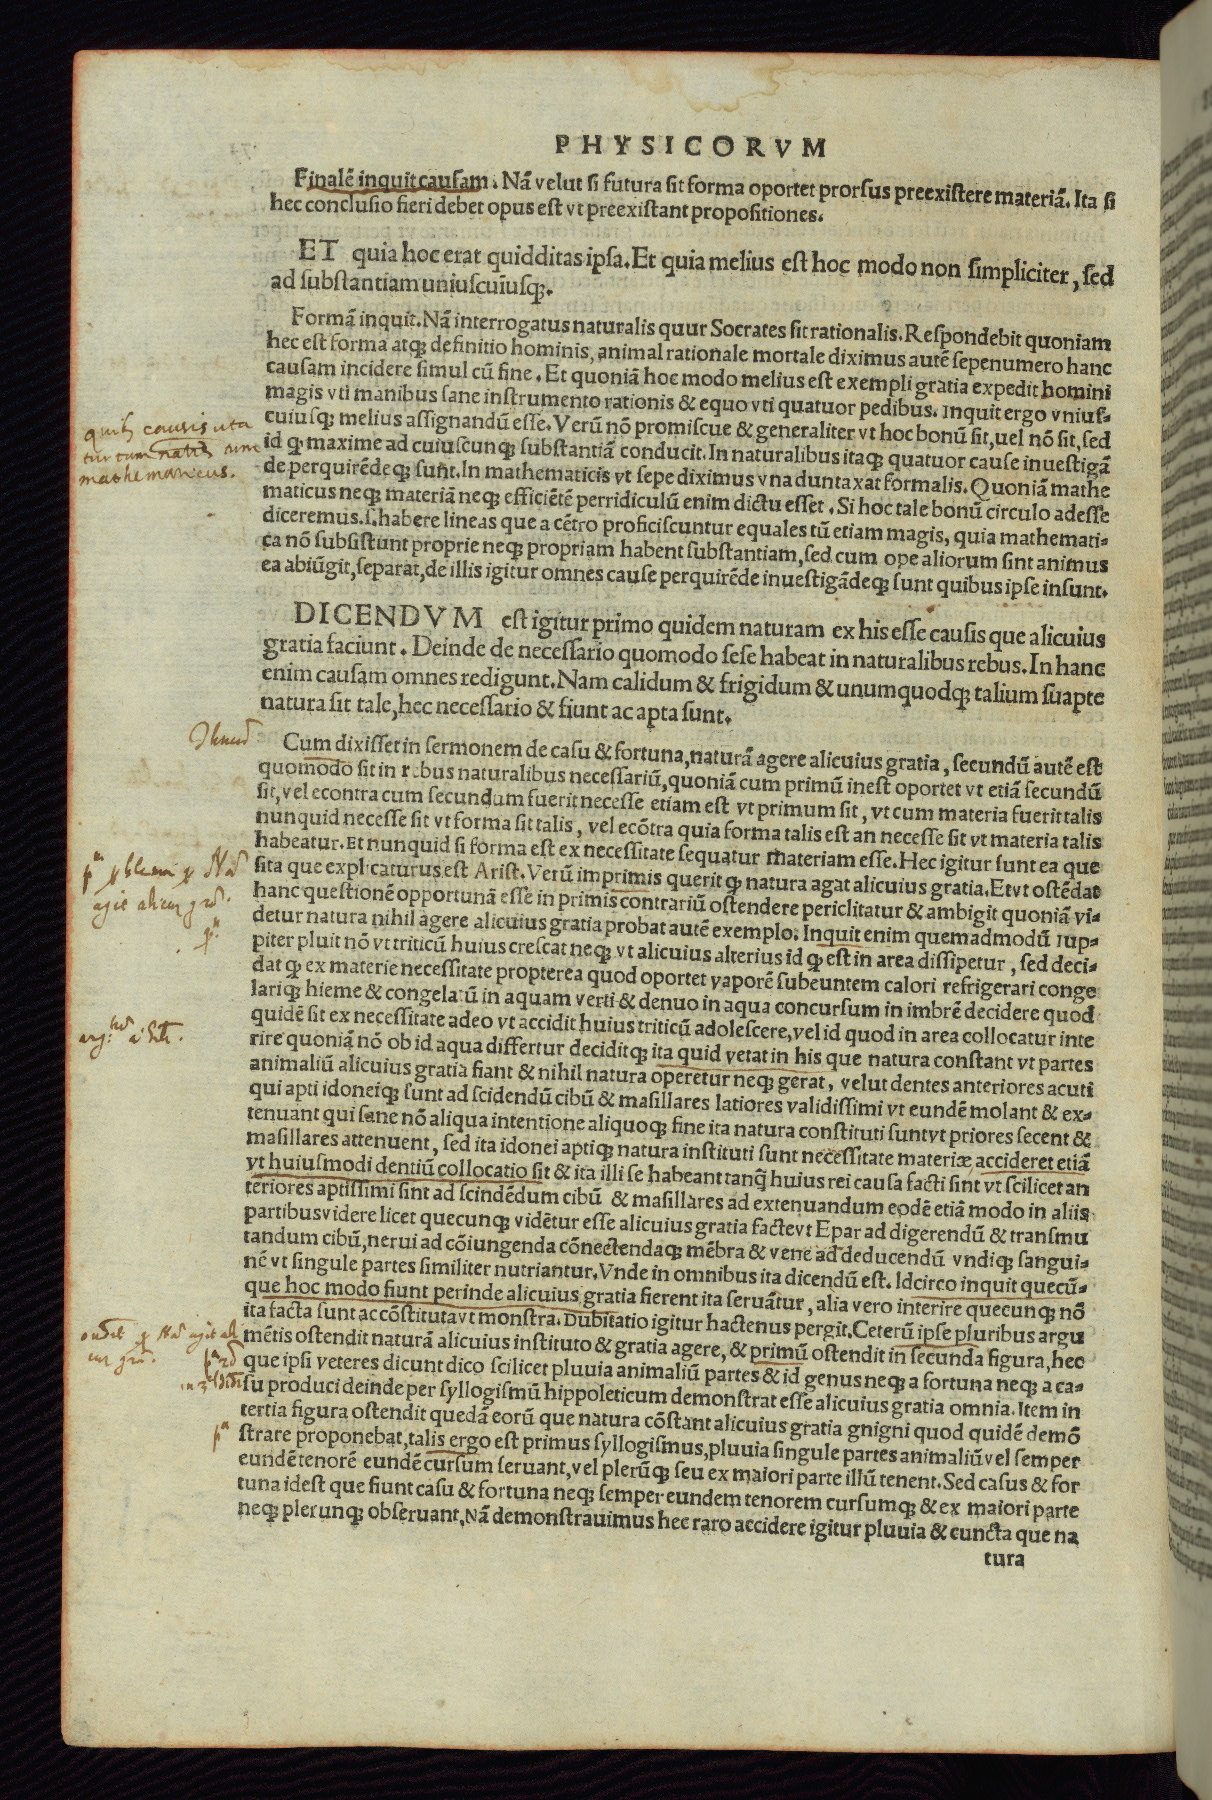 PHYSICORVM
Finalē inquit causam. Nā velut si futura sit forma oportet prorsus preexistere materiā. Ita si
hec conclusio fieri debet opus est vt preexistant propositiones.
ET quia hoc erat quidditas ipsa. Et quia melius est hoc modo non simpliciter, sed
ad substantiam uniuscuiusq;.
Formā inquit. Nā interrogatus naturalis quur Socrates sit rationalis. Respondebit quoniam
hec est forma atq; definitio hominis, animal rationale mortale diximus autē sepenumero hanc
causam incidere simul cū fine. Et quoniā hoc modo melius est exempli gratia expedit homini
magis vti manibus sane instrumento rationis & equo vti quatuor pedibus. Inquit ergo vnius-
cuiusq; melius assignandū esse. Verū nō promiscue & generaliter vt hoc bonū sit, uel nō sit, sed
id q maxime ad cuiuscunq; substantiā conducit. In naturalibus itaq; quatuor cause inuestigā
de perquirēdeq; sunt. In mathematicis vt sepe diximus vna duntaxat formalis. Quoniā mathe
maticus neq; materiā neq; efficiētē perridiculū enim dictu esset. Si hoc tale bonū circulo adesse
diceremus. s. habere lineas que a cētro proficiscuntur equales tū etiam magis, quia mathemati-
ca nō subsistunt proprie neq; propriam habent substantiam, sed cum ope aliorum sint animus
ea abiūgit, separat, de illis igitur omnes cause perquirēde inuestigādeq; sunt quibus ipse insunt.
quib; causis uta
tur tum natlis tum
mathematicus.
DICENDVM est igitur primo quidem naturam ex his esse causis que alicuius
gratia faciunt. Deinde de necessario quomodo sese habeat in naturalibus rebus. In hanc
enim causam omnes redigunt. Nam calidum & frigidum & unumquodq; talium suapte
natura sit tale, hec necessario & fiunt ac apta sunt.
Cum dixisset in sermonem de casu & fortuna, naturā agere alicuius gratia, secundū autē est
quomodo sit in rebus naturalibus necessariū, quoniā cum primū inest oportet vt etiā secundū
sit, vel econtra cum secundum fuerit necesse etiam est vt primum sit, vt cum materia fuerit talis
nunquid necesse sit vt forma sit talis, vel ecōtra quia forma talis est an necesse sit vt materia talis
habeatur. Et nunquid si forma est ex necessitate sequatur materiam esse. Hec igitur sunt ea que
sita que explicaturus est Arist. Verū imprimis querit q natura agat alicuius gratia. Et vt ostēdat
hanc questionē opportunā esse in primis contrariū ostendere periclitatur & ambigit quoniā vi-
detur natura nihil agere alicuius gratia probat autē exemplo. Inquit enim quemadmodū Iup-
piter pluit nō vt triticū huius crescat neq; vt alicuius alterius id q est in area dissipetur, sed deci-
dat q ex materie necessitate propterea quod oportet vaporē subeuntem calori refrigerari conge
lariq; hieme & congelatū in aquam verti & denuo in aqua concursum in imbrē decidere quod
quidē sit ex necessitate adeo vt accidit huius triticū adolescere, vel id quod in area collocatur inte
rire quoniā nō ob id aqua differtur deciditq; ita quid vetat in his que natura constant vt partes
animaliū alicuius gratia fiant & nihil natura operetur neq; gerat, velut dentes anteriores acuti
qui apti idoneiq; sunt ad scidendū cibū & masillares latiores validissimi vt eundē molant & ex-
tenuant qui sane nō aliqua intentione aliquoq; fine ita natura constituti sunt vt priores secent &
masillares attenuent, sed ita idonei aptiq; natura instituti sunt necessitate materiæ accideret etiā
vt huiusmodi dentiū collocatio sit & ita illi se habeant tanq̃ huius rei causa facti sint vt scilicet an
teriores aptissimi sint ad scindēdum cibū & masillares ad extenuandum eodē etiā modo in aliis
partibus videre licet quecunq; vidētur esse alicuius gratia facte vt Epar ad digerendū & transmu
tandum cibū, nerui ad cōiungenda cōnectendaq; mēbra & vene ad deducendū vndiq; sangui-
nē vt singule partes similiter nutriantur. Vnde in omnibus ita dicendū est. Idcirco inquit quecū-
que hoc modo fiunt perinde alicuius gratia fierent ita seruātur, alia vero interire quecunq; nō
ita facta sunt ac cōstituta vt monstra. Dubitatio igitur hactenus pergit. Ceterū ipse pluribus argu
mētis ostendit naturā alicuius instituto & gratia agere, & primū ostendit in secunda figura, hec
que ipsi veteres dicunt dico scilicet pluuia animaliū partes & id genus neq; a fortuna neq; a ca-
su produci deinde per syllogismū hippoleticum demonstrat esse alicuius gratia omnia. Item in
tertia figura ostendit quedā eorū que natura cōstant alicuius gratia gnigni quod quidē demō
strare proponebat, talis ergo est primus syllogismus, pluuia singule partes animaliū vel semper
eundē tenorē eundē cursum seruant, vel plerūq; seu ex maiori parte illū tenent. Sed casus & for
tuna idest que fiunt casu & fortuna neq; semper eundem tenorem cursumq; & ex maiori parte
neq; plerunq; obseruant, Nā demonstrauimus hec raro accidere igitur pluuia & cuncta que na
tura